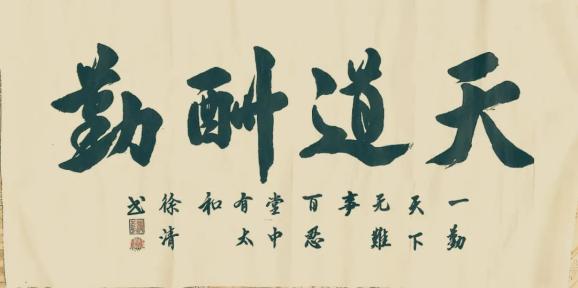 天道酬勤
一勤
天下
无難
事
百忍
堂中
有太
和
徐清
书